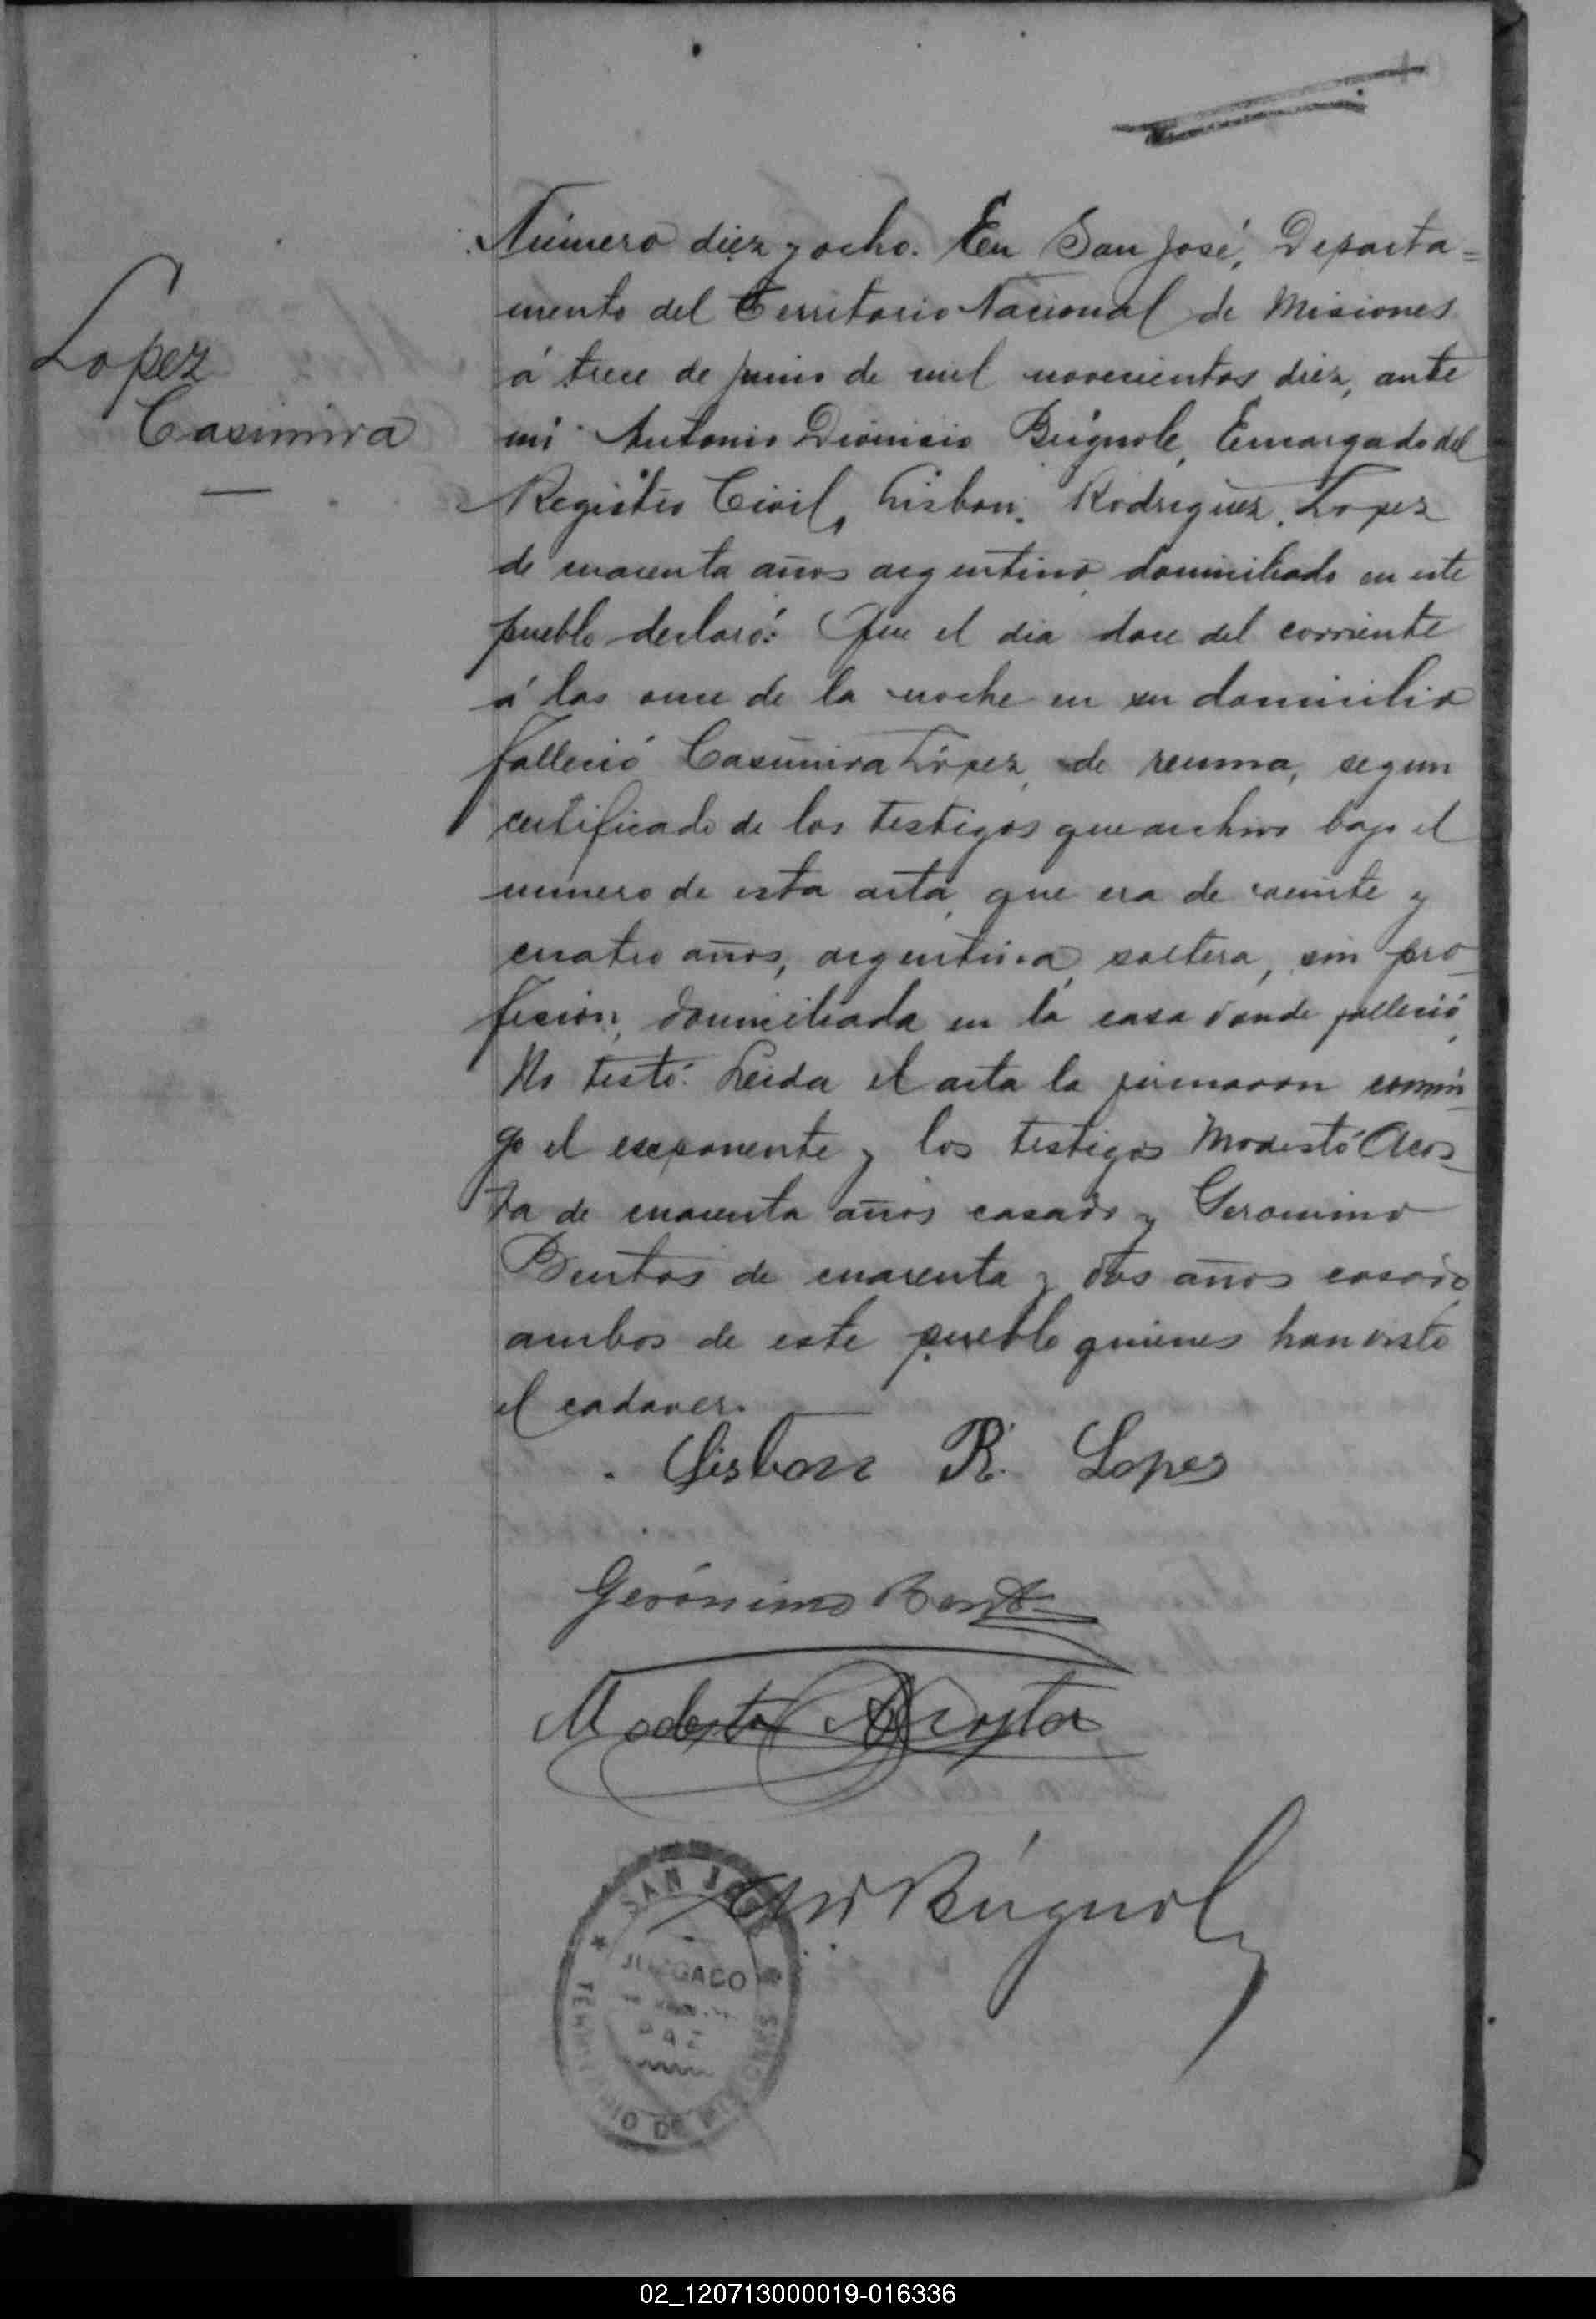 Lopez
Casimira
Número diez y ocho. En San José, Departa=
mento del Territorio Nacional de Misiones
á trece de junio de mil novecientos diez, ante
mi Antonio Dionisio Brignole, Encargado del
Registro Civil, Lisbon Rodriguez Lopez
de cuarenta años argentino, domiciliado en este
pueblo declaró: Que el dia doce del corriente
á las once de la noche en su domicilio
falleció Casimira López, de reuma, segun
certificado de los testigos que archivo bajo el
número de esta acta, que era de veinte y
cuatro años, argentina, soltera, sin pro-
fesion, domiciliada en la casa donde falleció,
No testó. Leida el acta la firmaron conmi-
go el exponente y los testigos Modesto Acos-
ta de cuarenta años casado y Geronimo
Bentos de cuarenta y dos años casado
ambos de este pueblo quienes han visto
el cadaver.
Lisbon R. Lopes
Gerónimo
Modesto Acosta
Brignole
SAN JOSÉ
JUZGADO
DE
PAZ
TERRITORIO DE MISIONES
02_120713000019-016336